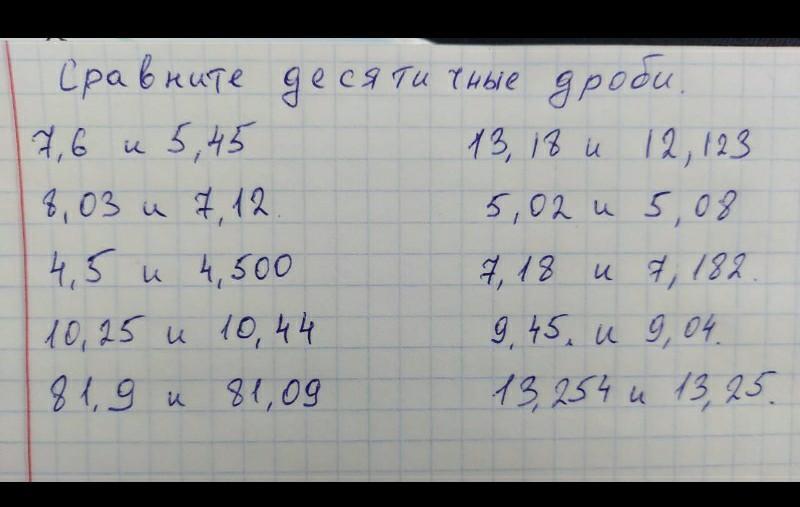 Сравните десятичные дроби.
7,6 и 5,45 13,18 и 12,123
8,03 и 7,12. 5,02 и 5,08
4,5 и 4,500 7,18 и 7,182.
10,25 и 10,44 9,45. и 9,04.
81,9 и 81,09 13,254 и 13,25.